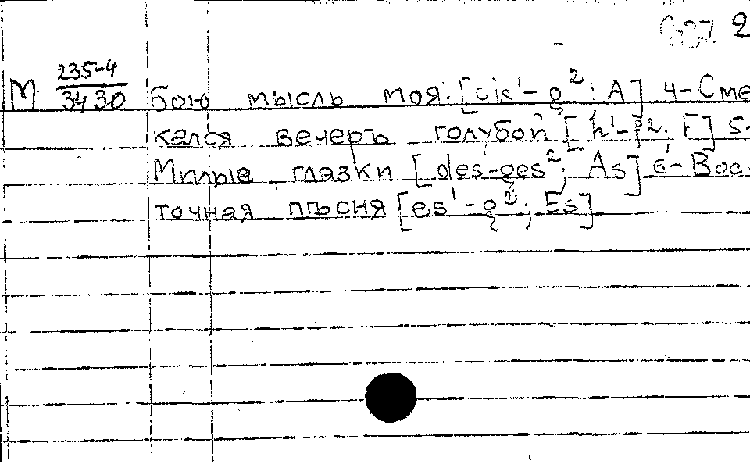 2
М 235-4 бою мысль моя: [cis¹-g²; A] 4-Сме
3430
кался вечеръ голубой [h¹- ²; F] 5-
Милые глазки [des-ges²; As] 6-Вос
точная пѣсня [es¹-g²; Es]